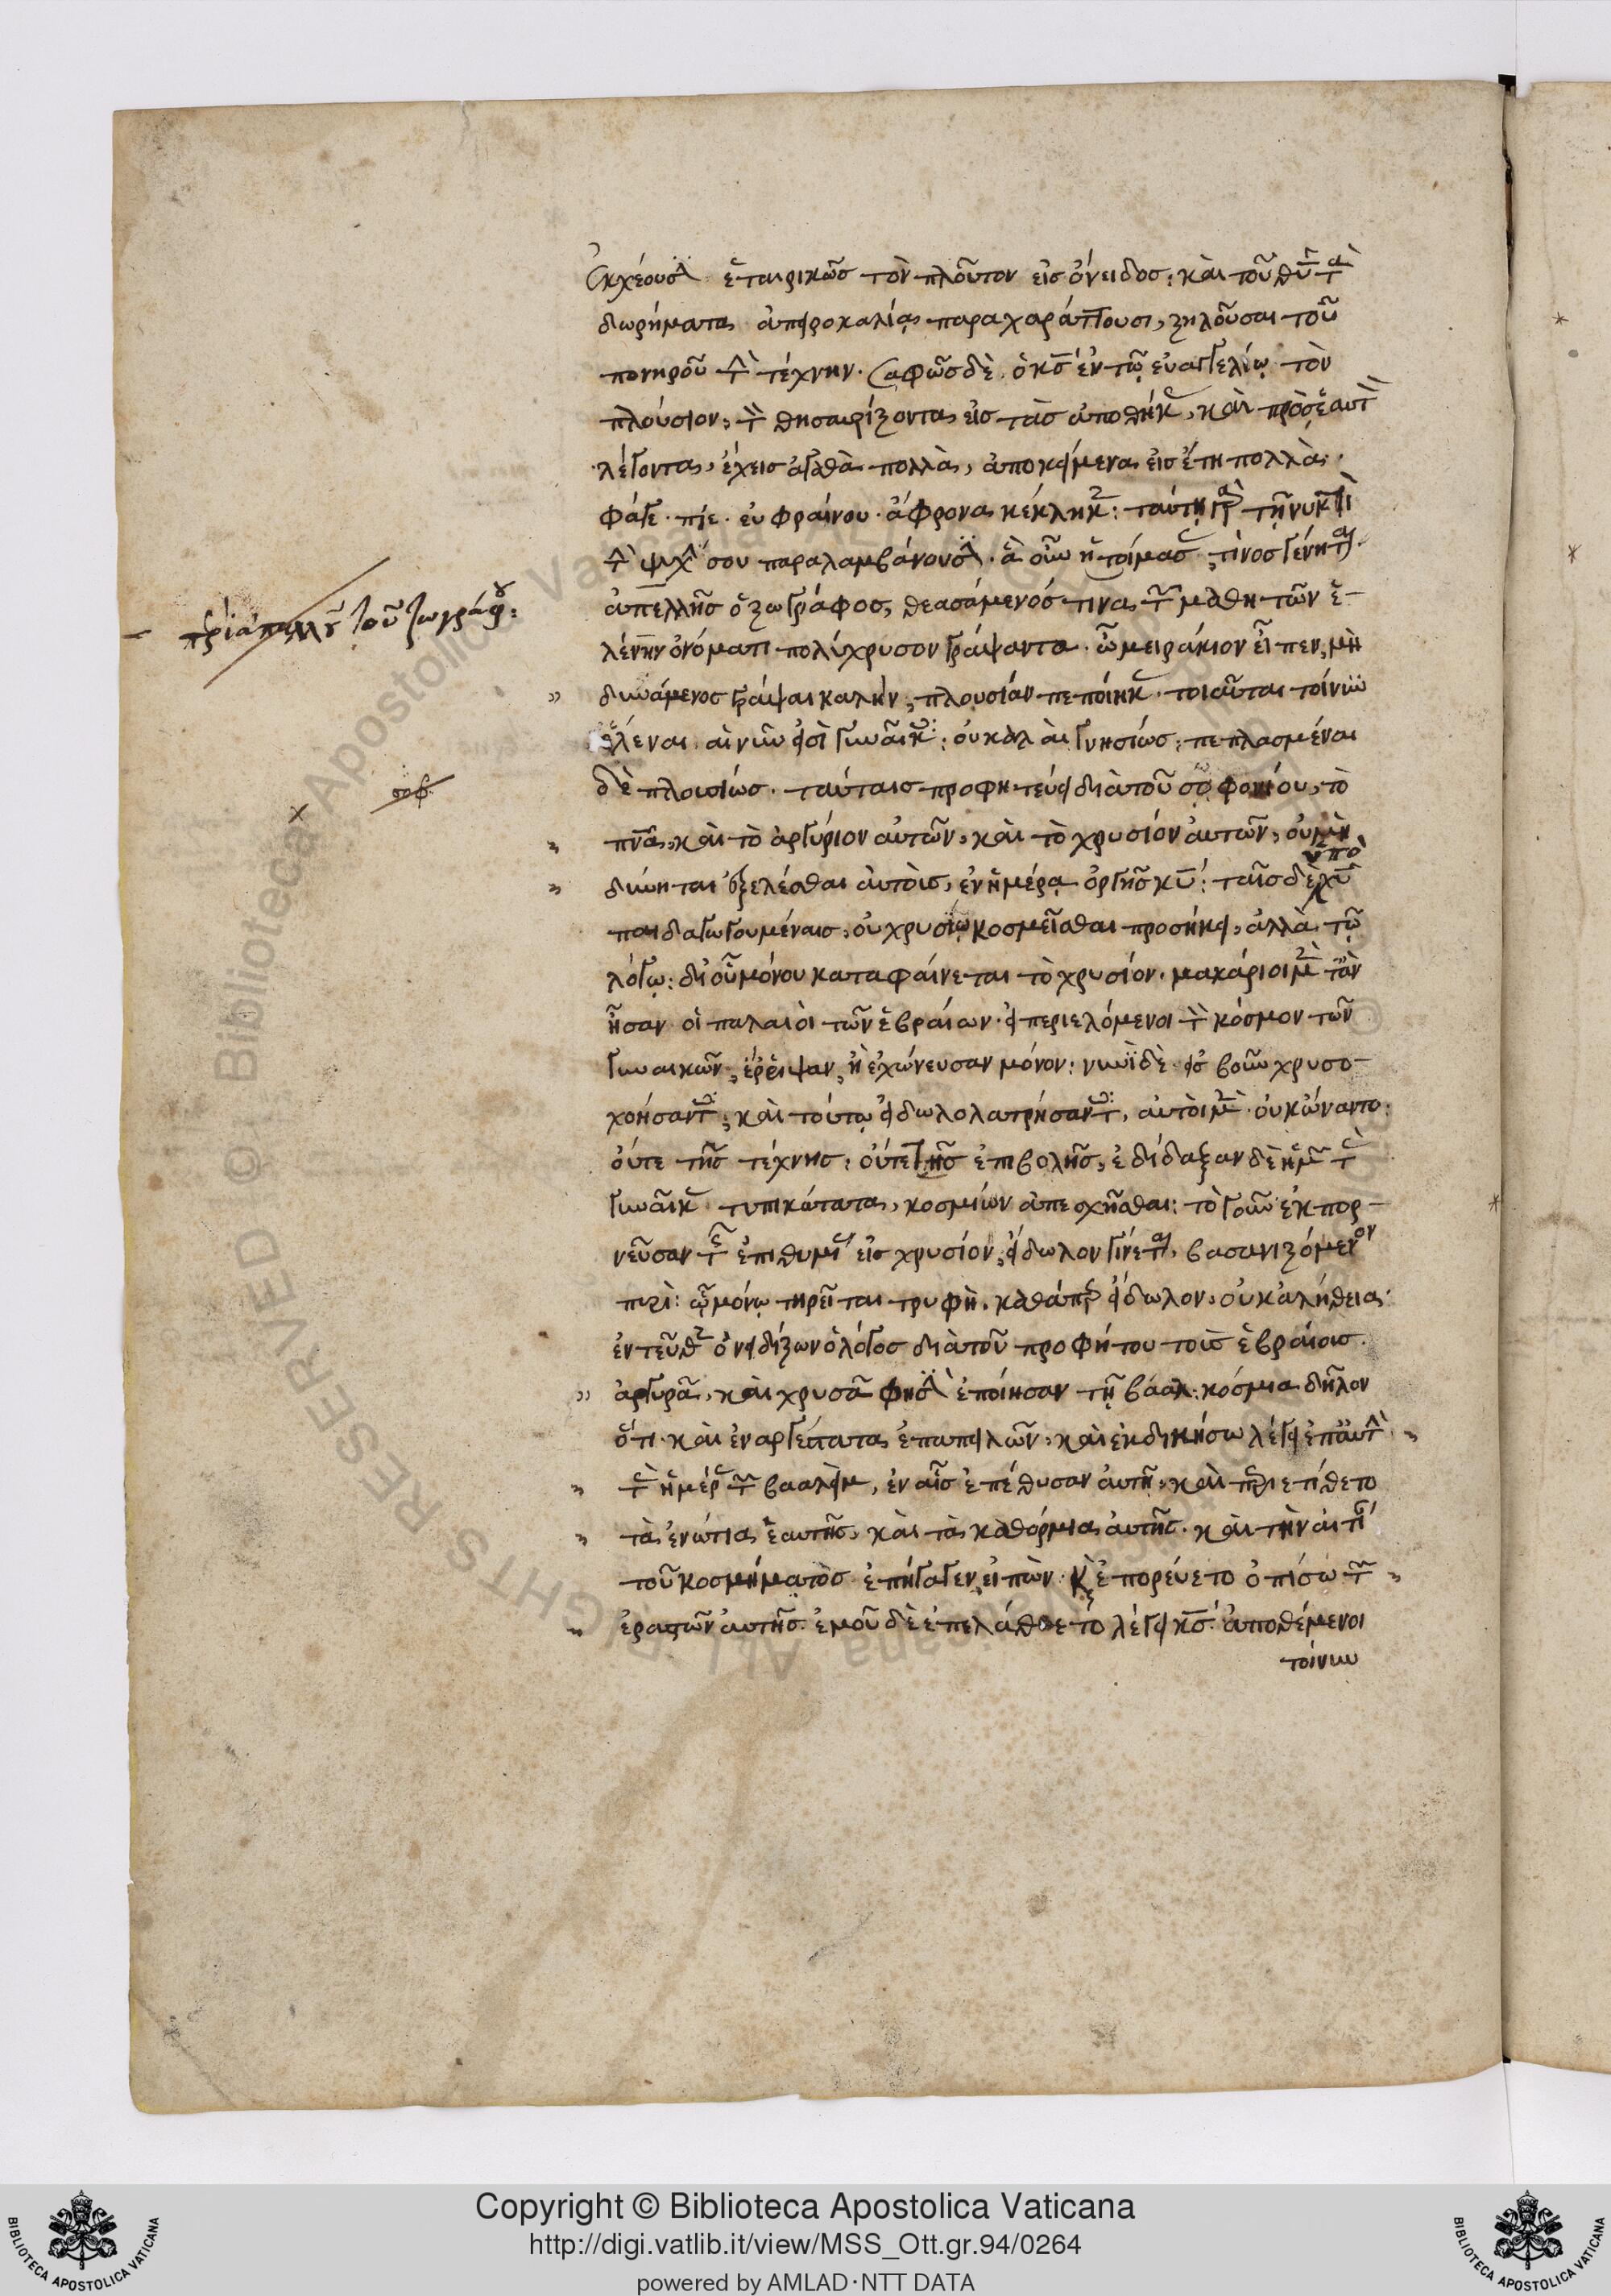 ἐκχέουσαι ἑταιρικῶς τὸν πλοῦτον εἰς ὄνειδος: καὶ τοῦ θῦ τὰ
δωρήματα ἀπειροκαλίᾳ παραχαράττουσι, ζηλοῦσαι τοῦ
πονηροῦ τὴν τέχνην. Σαφῶς δὲ ὁ κς ἐν τῷ εὐαγγελίῳ τὸν
πλούσιον, τὸν θησαυρίζοντα εἰς τὰς ἀποθήκας, καὶ πρὸς ἑαυτὸν
λέγοντα, ἔχεις ἀγαθὰ πολλὰ, ἀποκείμενα εἰς ἔτη πολλὰ.
φάγε. πίε. εὐφραίνου. ἄφρονα κέκληκεν: ταύτῃ γὰρ τῇ νυκτὶ
τὴν ψυχήν σου παραλαμβάνουσιν. ἃ οὖν ἡτοίμασας, τίνος γένηται.
ἀπελλῆς ὁ ζωγράφος, θεασάμενός τινα τῶν μαθητῶν ἑ-
λένην ὀνόματι πολύχρυσον γράψαντα. ὦ μειράκιον εἶπεν, μὴ
δυνάμενος γράψαι καλὴν, πλουσίαν πεποίηκας. τοιαῦται τοίνυν
ἑλέναι αἱ νῦν εἰσὶ γυναῖκες: οὐ καλαὶ γνησίως: πεπλασμέναι
δὲ πλουσίως. ταύταις προφητεύει διὰ τοῦ σοφονίου, τὸ
πνᾶ, καὶ τὸ ἀργύριον αὐτῶν, καὶ τὸ χρυσίον αὐτῶν, οὐ μὴ
δύνηται ἐξελέσθαι αὐτοὺς, ἐν ἡμέρᾳ ὀργῆς κυ: ταῖς δὲ ὑπὸ χῦ
παιδαγωγουμέναις, οὐ χρυσίῳ κοσμεῖσθαι προσήκει, ἀλλὰ τῷ
λόγῳ: δι' οὗ μόνου καταφαίνεται τὸ χρυσίον. μακάριοι μὲν τἂν
ἦσαν οἱ παλαιοὶ τῶν ἑβραίων. εἰ περιελόμενοι τὸν κόσμον τῶν
γυναικῶν, ἔρριψαν, ἢ ἐχώνευσαν μόνον: νυνὶ δὲ εἰς βοῦν χρυσο-
χοήσαντες, καὶ τούτῳ εἰδωλολατρήσαντες, αὐτοὶ μὲν οὐκ ὤναντο:
οὔτε τῆς τέχνης: οὔτε τῆς ἐπιβολῆς, ἐδίδαξαν δὲ ἡμῶν τὰς
γυναῖκας τυπικώτατα, κοσμίων ἀπεσχῆσθαι: τὸ γοῦν ἐκπορ-
νεῦσαν τῆς ἐπιθυμίας εἰς χρυσίον, εἴδωλον γίνεται, βασανιζόμενον
πυρὶ: ᾧ μόνῳ τηρεῖται τρυφὴ. καθάπερ εἴδωλον, οὐκ ἀλήθεια
ἐντεῦθεν ὀνειδίζων ὁ λόγος διὰ τοῦ προφήτου τοῖς ἑβραίοις.
ἀργυρᾶ, καὶ χρυσᾶ φησὶν ἐποίησαν τῇ βάαλ: κόσμια δῆλον
ὅτι. καὶ ἐναργέστατα ἐπαπειλῶν, καὶ ἐκδικήσω λέγει ἐπ' αὐτὴν
τὰς ἡμέρας τῶν βααλεὶμ, ἐν αἷς ἐπέθυσαν αὐτῇ, καὶ περιετίθετο
τὰ ἐνώτια ἑαυτῆς, καὶ τὰ καθόρμια αὐτῆς. καὶ τὴν αἰτίαν
τοῦ κοσμήματος ἐπήγαγεν, εἰπὼν. καὶ ἐπορεύετο ὀπίσω τῶν
ἐραστῶν αὐτῆς. ἐμοῦ δὲ ἐπελάθετο λέγει κς. ἀποθέμενοι
τοίνυν
περὶ ἀπελλοῦ τοῦ ζωγράφου:
σοφ
Copyright © Biblioteca Apostolica Vaticana
http://digi.vatlib.it/view/MSS_Ott.gr.94/0264
powered by AMLAD·NTT DATA
BIBLIOTECA APOSTOLICA VATICANA
BIBLIOTECA APOSTOLICA VATICANA